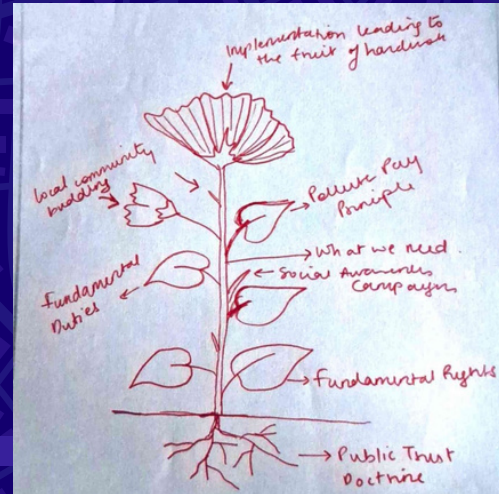 Implementation leading to
the fruit of hardwork
local community
budding
Pollute Pay
Principle
What we need
Social Awareness
Campaigns
Fundamental
Duties
Fundamental Rights
Public Trust
Doctrine